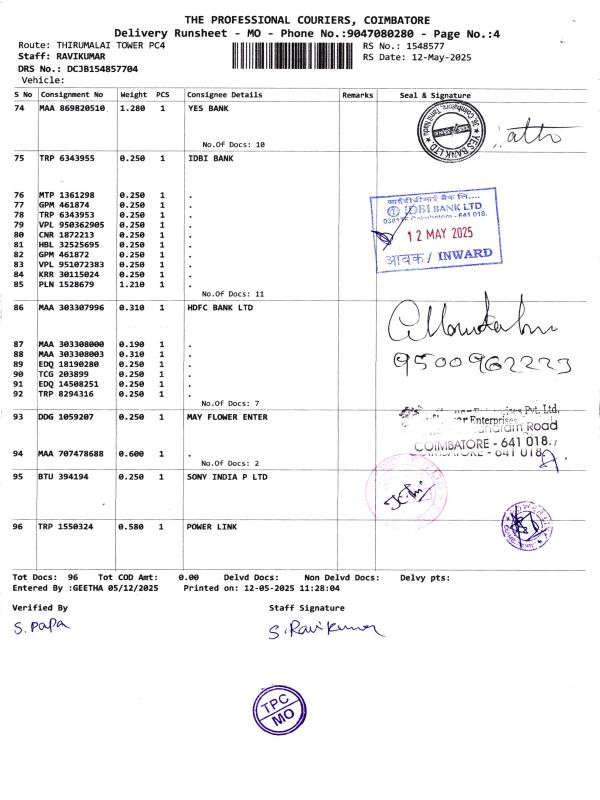 THE PROFESSIONAL COURIERS, COIMBATORE
Delivery Runsheet - MO - Phone No.:9047080280 - Page No.:4
Route: THIRUMALAI TOWER PC4
RS No.: 1548577
Staff: RAVIKUMAR
RS Date: 12-May-2025
DRS No.: DCJB154857704
Vehicle:
S No Consignment No Weight PCS Consignee Details Remarks Seal & Signature
74 MAA 869820510 1.280 1 YES BANK
YES BANK LTD
No.Of Docs: 10
75 TRP 6343955 0.250 1 IDBI BANK
76 MTP 1361298 0.250 1 .
77 GPM 461874 0.250 1 .
78 TRP 6343953 0.250 1 .
79 VPL 950362905 0.250 1 .
80 CNR 1872213 0.250 1 .
81 HBL 32525695 0.250 1 .
82 GPM 461872 0.250 1 .
83 VPL 951072383 0.250 1 .
84 KRR 30115024 0.250 1 .
85 PLN 1528679 1.210 1 .
No.Of Docs: 11
IDBI BANK LTD
Coimbatore - 641 018.
12 MAY 2025
आवक / INWARD
86 MAA 303307996 0.310 1 HDFC BANK LTD
87 MAA 303308000 0.190 1 .
88 MAA 303308003 0.310 1 .
89 EDQ 18190280 0.250 1 .
90 TCG 203899 0.250 1 .
91 EDQ 14508251 0.250 1 .
92 TRP 8294316 0.250 1 .
No.Of Docs: 7
9500962223
93 DDG 1059207 0.250 1 MAY FLOWER ENTER
94 MAA 707478688 0.600 1 .
No.Of Docs: 2
Pvt. Ltd.
Enterprises
Road
COIMBATORE - 641 018.
95 BTU 394194 0.250 1 SONY INDIA P LTD
96 TRP 1550324 0.580 1 POWER LINK
Tot Docs: 96 Tot COD Amt: 0.00 Delvd Docs: Non Delvd Docs: Delvy pts:
Entered By :GEETHA 05/12/2025 Printed on: 12-05-2025 11:28:04
Verified By Staff Signature
S. Papa
S. Ravikumar
TPC
MO